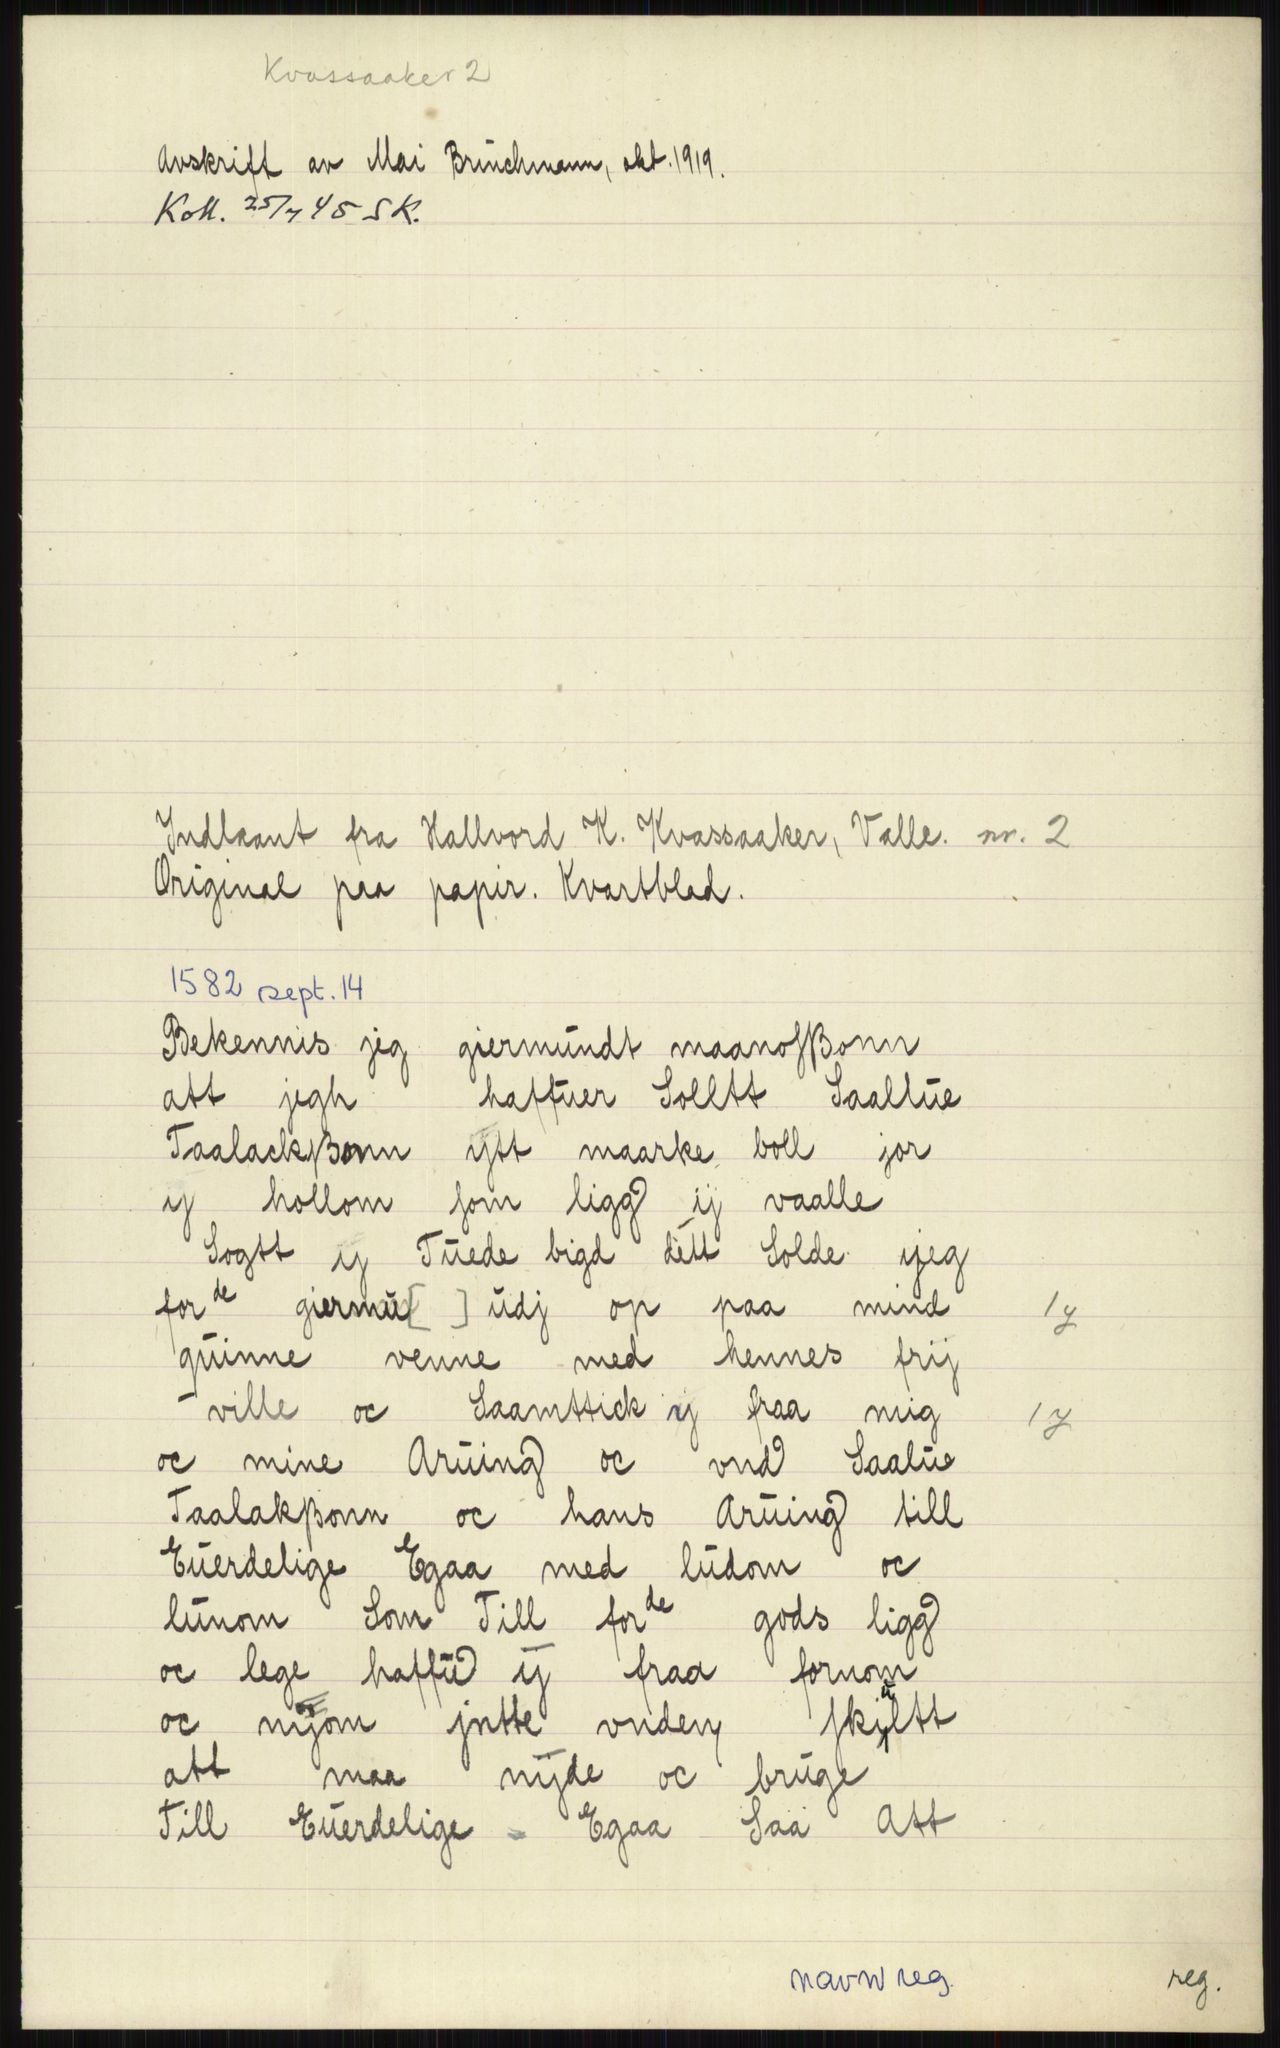 Kvassaaker 2
Avskrift av Mai Brüchmann, okt. 1919.
Koll. 25/7 45 SK.
Indlaant fra Hallvord K. Kvassaaker, Valle. nr. 2
Original paa papir. Kvartblad.
1582 sept. 14
Bekennis jeg giermŭndt maanosßonn
att jegh haffŭer Solltt Saallŭe
Taalackßonn ytt maarke boll jor
y hollom som ligg ij vaalle
Sogtt y Tŭede bigd dett Solde ijeg
for de giermŭ[ ]ŭdj op paa mind 1y
qŭinne venne med hennes frij
ville oc Saamttick ij fraa mig 1y
oc mine Arŭing oc vnd Saalŭe
Taalakßonn oc hans Arŭing till
Eŭerdelige Egaa med lŭdom oc
lŭnom Som Till for de gods ligg
oc lege haffŭ ij fraa fornom
oc nyom jntte vnden skiltt
att maa nyde oc brŭge
Till Eŭerdelige Egaa Saa Att
navnreg. reg.